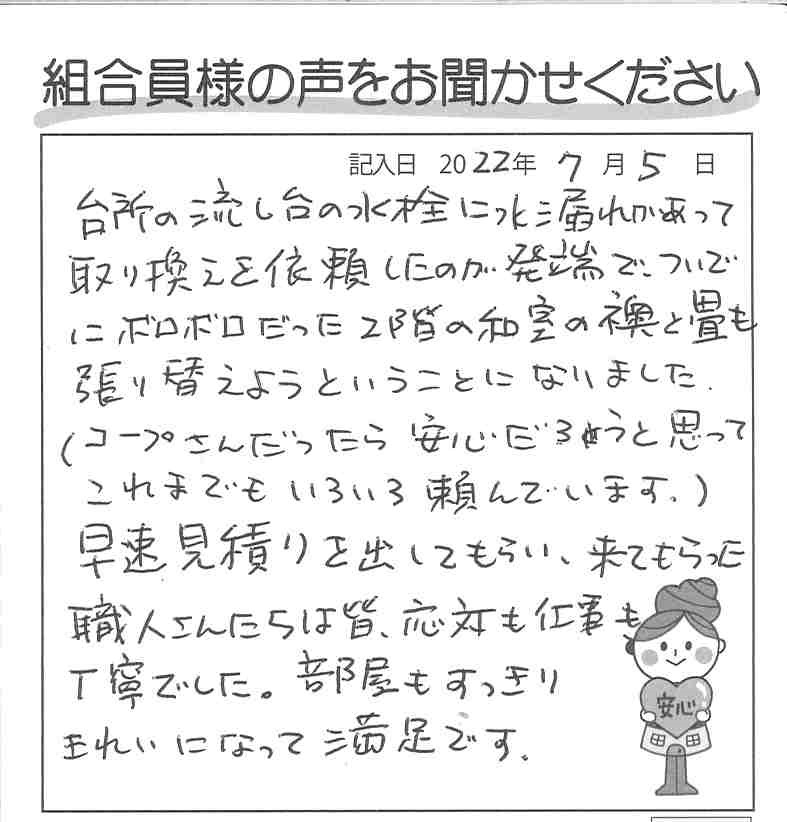 組合員様の声をお聞かせください
記入日 2022年 7月5日
台所の流し台の水栓に水漏れがあって
取り換えを依頼したのが発端で、ついで
にボロボロだった2階の和室の襖と畳も
張り替えようということになりました.
(コープさんだったら安心だろうと思って
これまでもいろいろ頼んでいます。)
早速見積りを出してもらい、来てもらった
職人さんたちは皆、応対も仕事も
丁寧でした。部屋もすっきり
きれいになって満足です.
安心